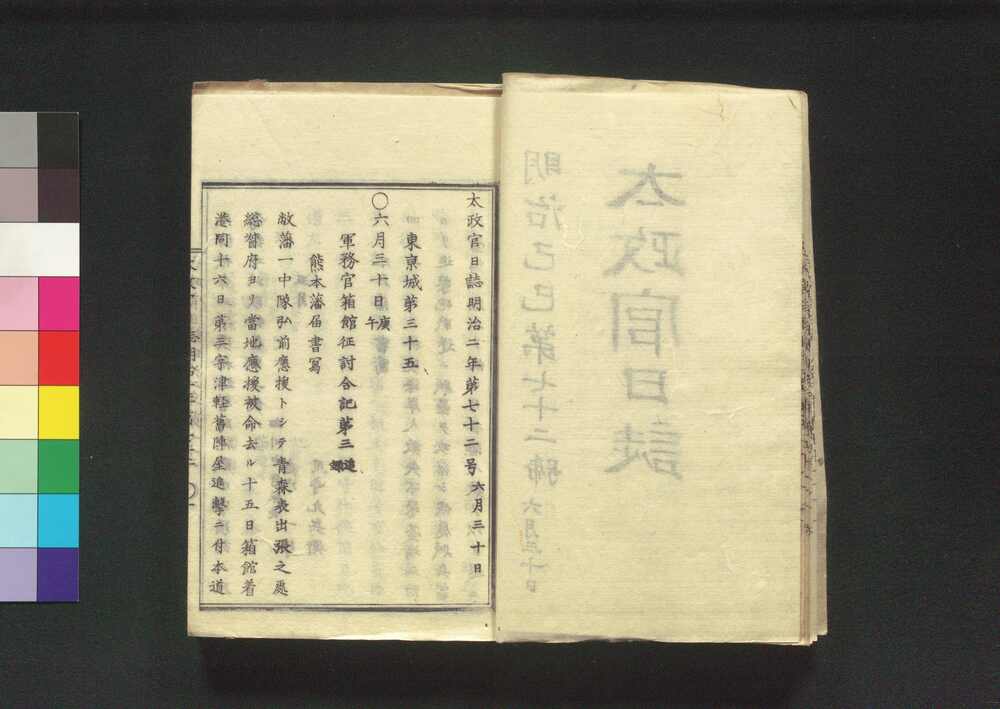 太政官日誌
明治己巳第七十二號 六月三十日
太政官日誌明治二年第七十二号 六月三十日
東京城第三十五
〇六月三十日庚午
軍務官箱館征討合記第三 追録
熊本藩届書冩
敝藩一中隊弘前應援トシテ青森表出張之處
總督府ヨリ當地應援被命去ル十五日箱館着
港同十六日第三字津軽舊陣屋進撃ニ付本道